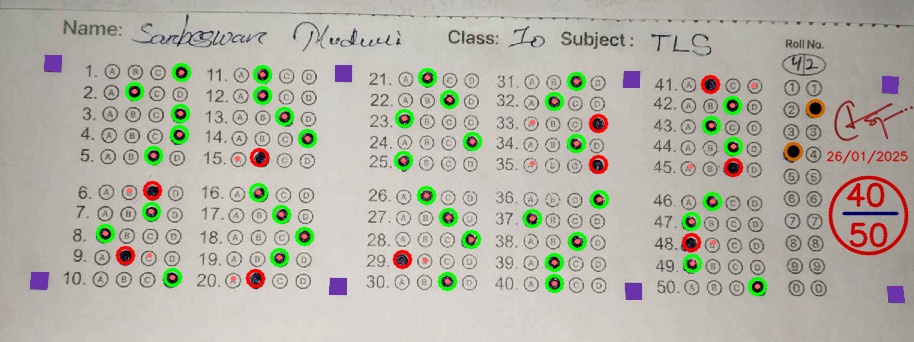 Name: Sarbeswar Muduli Class: 10 Subject: TLS
Roll No.
42
1. A B C
2. A C D
3. A B C
4. A B C
5. A B D
6. A B D
7. A B D
8. B C D
9. A C D
10. A B C
11. A C D
12. A C D
13. A B D
14. A B C
15. A C D
16. A C D
17. A B D
18. A B C
19. A B D
20. A C D
21. A C D
22. A B D
23. B C D
24. A B C
25. B C D
26. A C D
27. A B D
28. A B C
29. B C D
30. A B D
31. A B D
32. A C D
33. A B C
34. A B D
35. A B C
36. A B C
37. B C D
38. A B D
39. A C D
40. A C D
41. A C D
42. A B D
43. A C D
44. A B D
45. A B D
46. A C D
47. B C D
48. B C D
49. B C D
50. A B C
1 1
2
3 3
4
5 5
6 6
7 7
8 8
9 9
0 0
26/01/2025
40
50